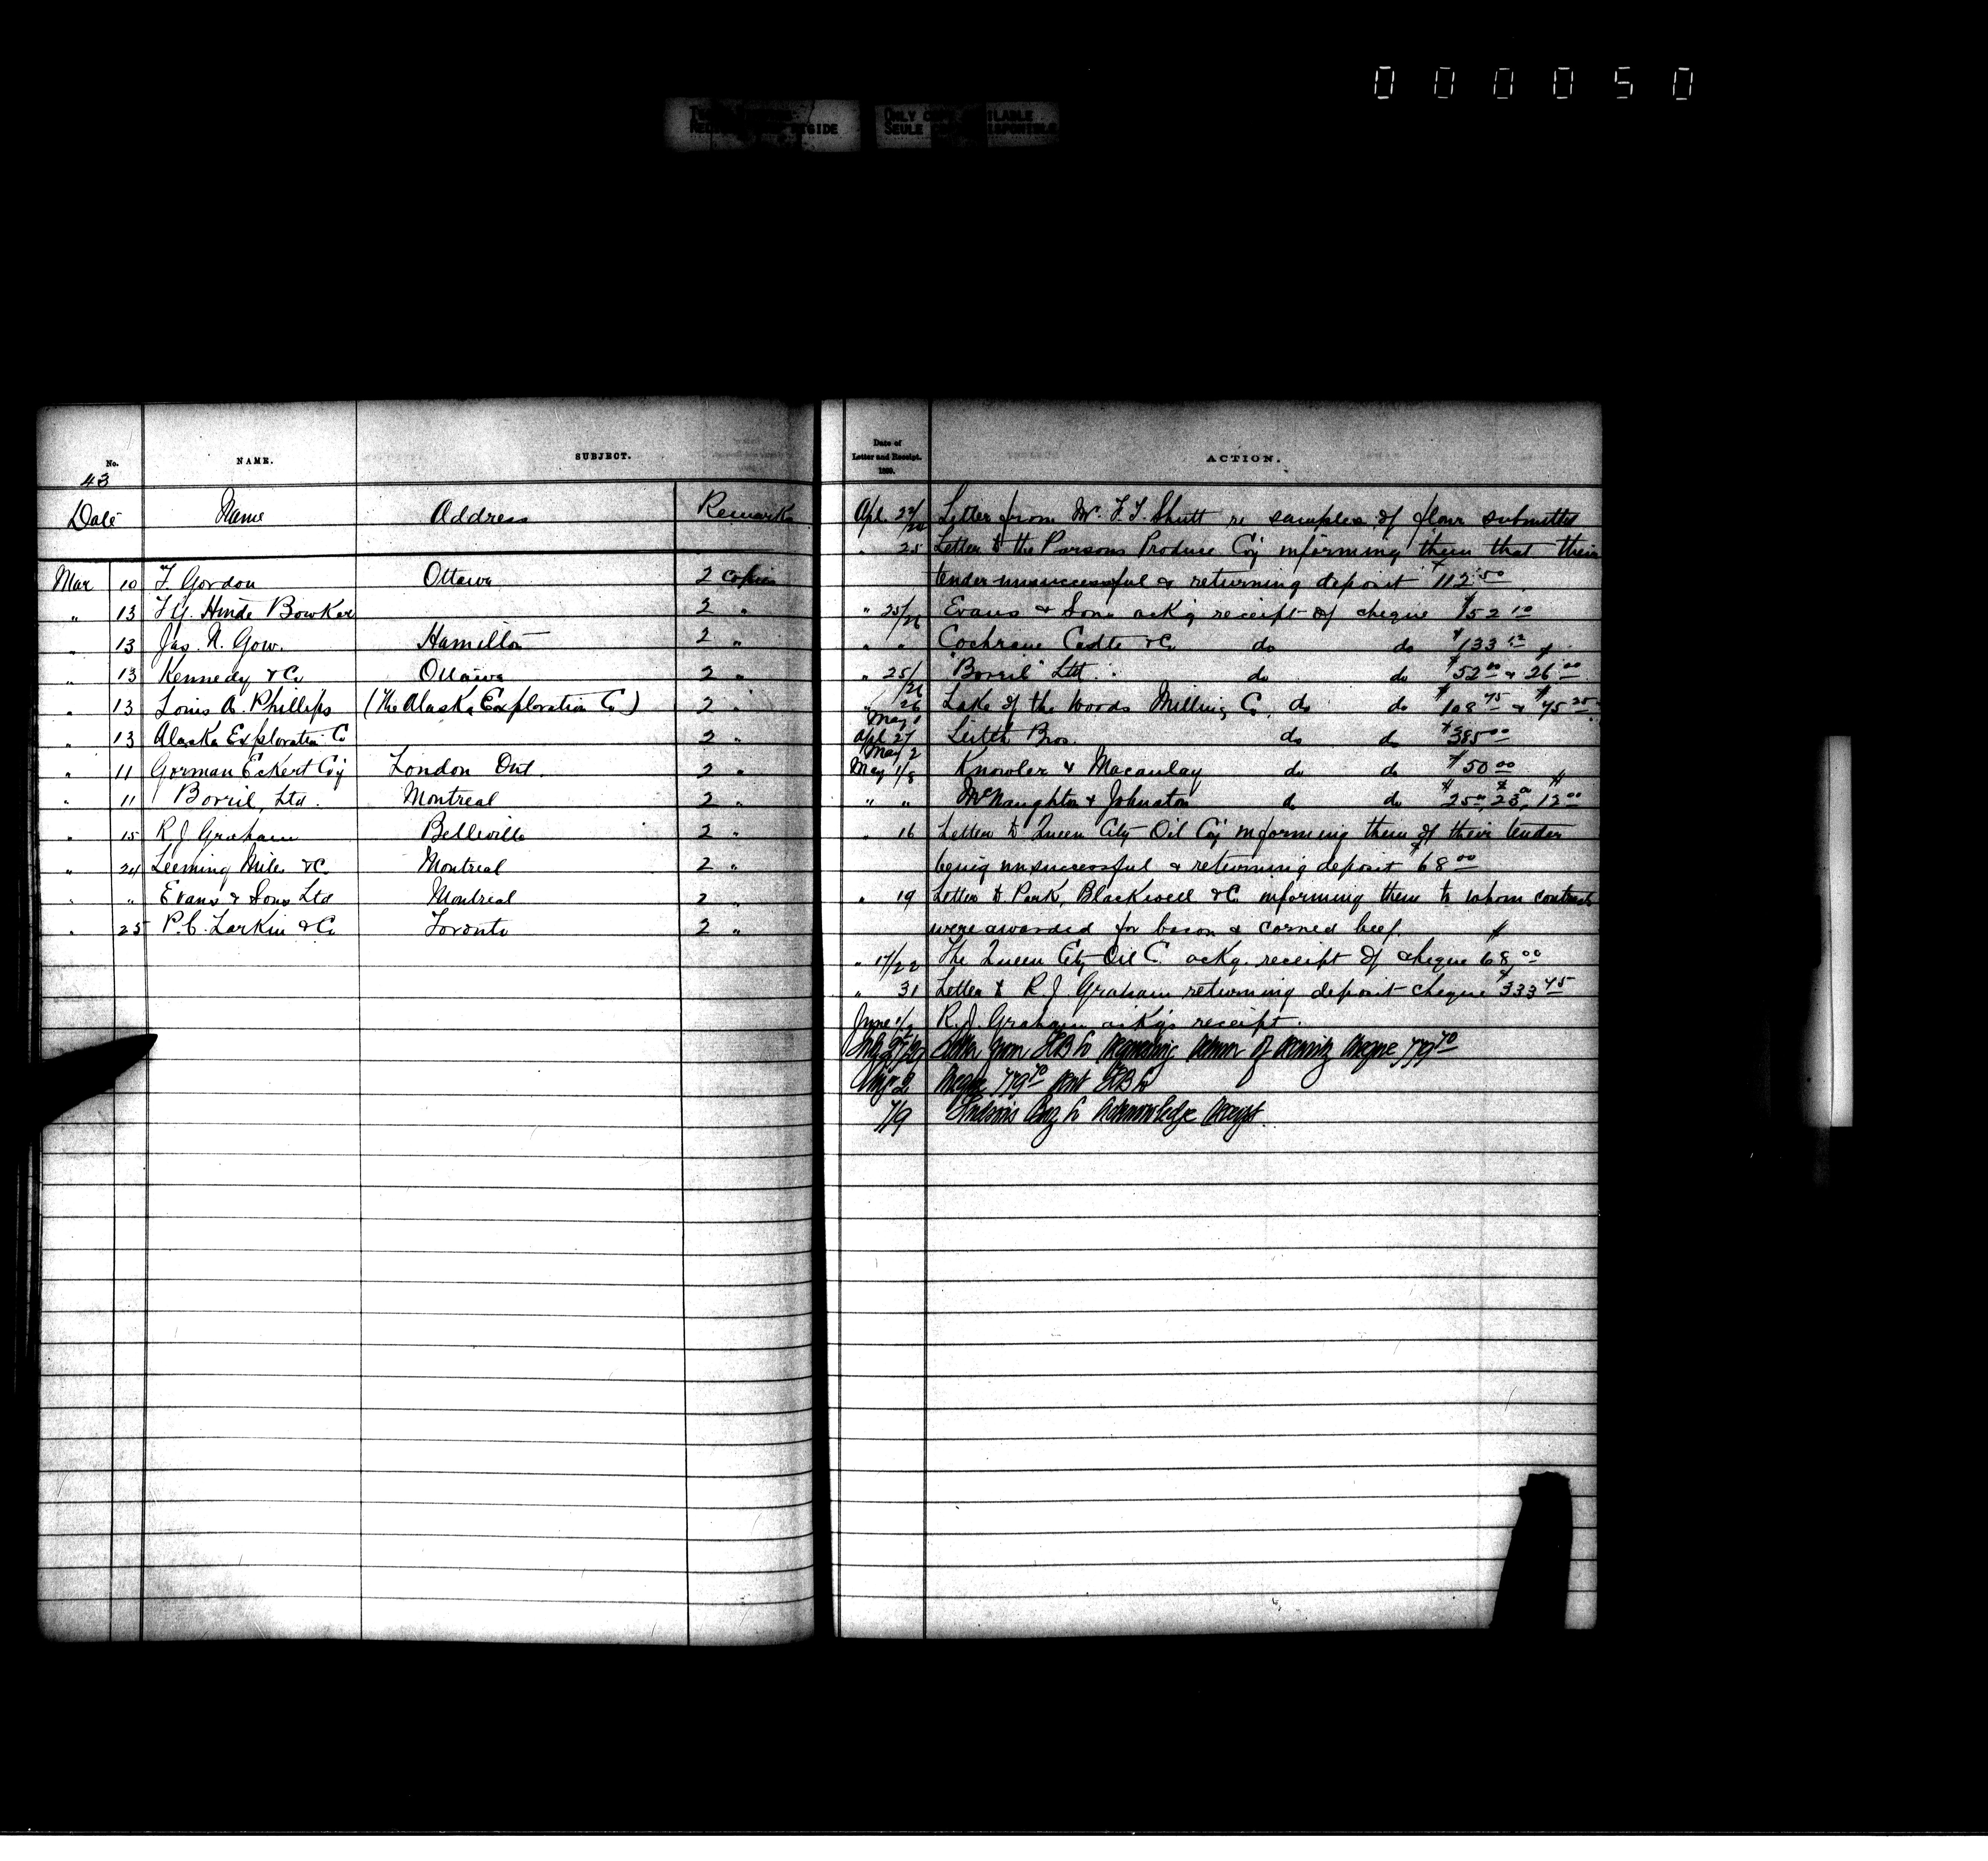 000050
ONLY COPY AVAILABLE
SEULE
No. NAME. SUBJECT.
43
Date Name Address Remarks
Mar 10 F. Gordon Ottawa 2 copies
" 13 Hinde Bowker 2 "
" 13 Jas. N. Gow. Hamilton 2 "
" 13 Kennedy & Co Ottawa 2 "
" 13 Louis A. Phillips (The Alaska Exploration Co) 2 "
" 13 Alaska Exploration Co 2 "
" 11 Gorman Eckert Coy London Ont. 2 "
" 11 Bovril, Ltd. Montreal 2 "
" 15 R J Graham Belleville 2 "
" 24 Leeming Miles & Co. Montreal 2 "
" " Evans & Sons Ltd Montreal 2 "
" 25 P. C. Larkin & Co Toronto 2 "
Date of
Letter and Receipt.
1899.
ACTION.
Apl. 24/24 Letter from Mr. F. T. Shutt re samples of flour submitted
" 25 Letter to the Parsons Produce Coy informing them that their
tender unsuccessful & returning deposit $112.50
" 25/26 Evans & Sons ack'g receipt of cheque $52 10
" " Cochrane Castle & Co. do do $133 12
" 25/26 "Bovril" Ltd. do do $52 00 & $26 00
" 26/May 1 Lake of the Woods Milling Co. do do $108 75 & $75 25
Apl 27/May 2 Leitch Bros. do do $385 00
May 1/8 Knowler & Macaulay do do $50 00
" " McNaughton & Johnston do do $25 00, $23 00, $12 00
" 16 Letter to Queen City Oil Coy informing them of their tender
being unsuccessful & returning deposit $68 00
" 19 Letter to Park, Blackwell & Co informing them to whom contracts
were awarded for bacon & corned beef.
" 17/22 The Queen City Oil Co ackg. receipt of cheque $68 00
" 31 Letter to R J Graham returning deposit cheque $333 75
June 1/2 R. J. Graham ack'gs receipt.
July 27/29 Letter from HB Co requesting return of security cheque 779 70
Aug 2 Cheque 779 70 sent HB Co
7/9 Hudson's Bay Co acknowledge receipt.